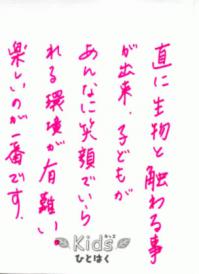 直に生物と触わる事
が出来、子どもが
あんなに笑顔でいら
れる環境が有難い。
楽しいのが一番です.
Kids
キッズ
ひとはく